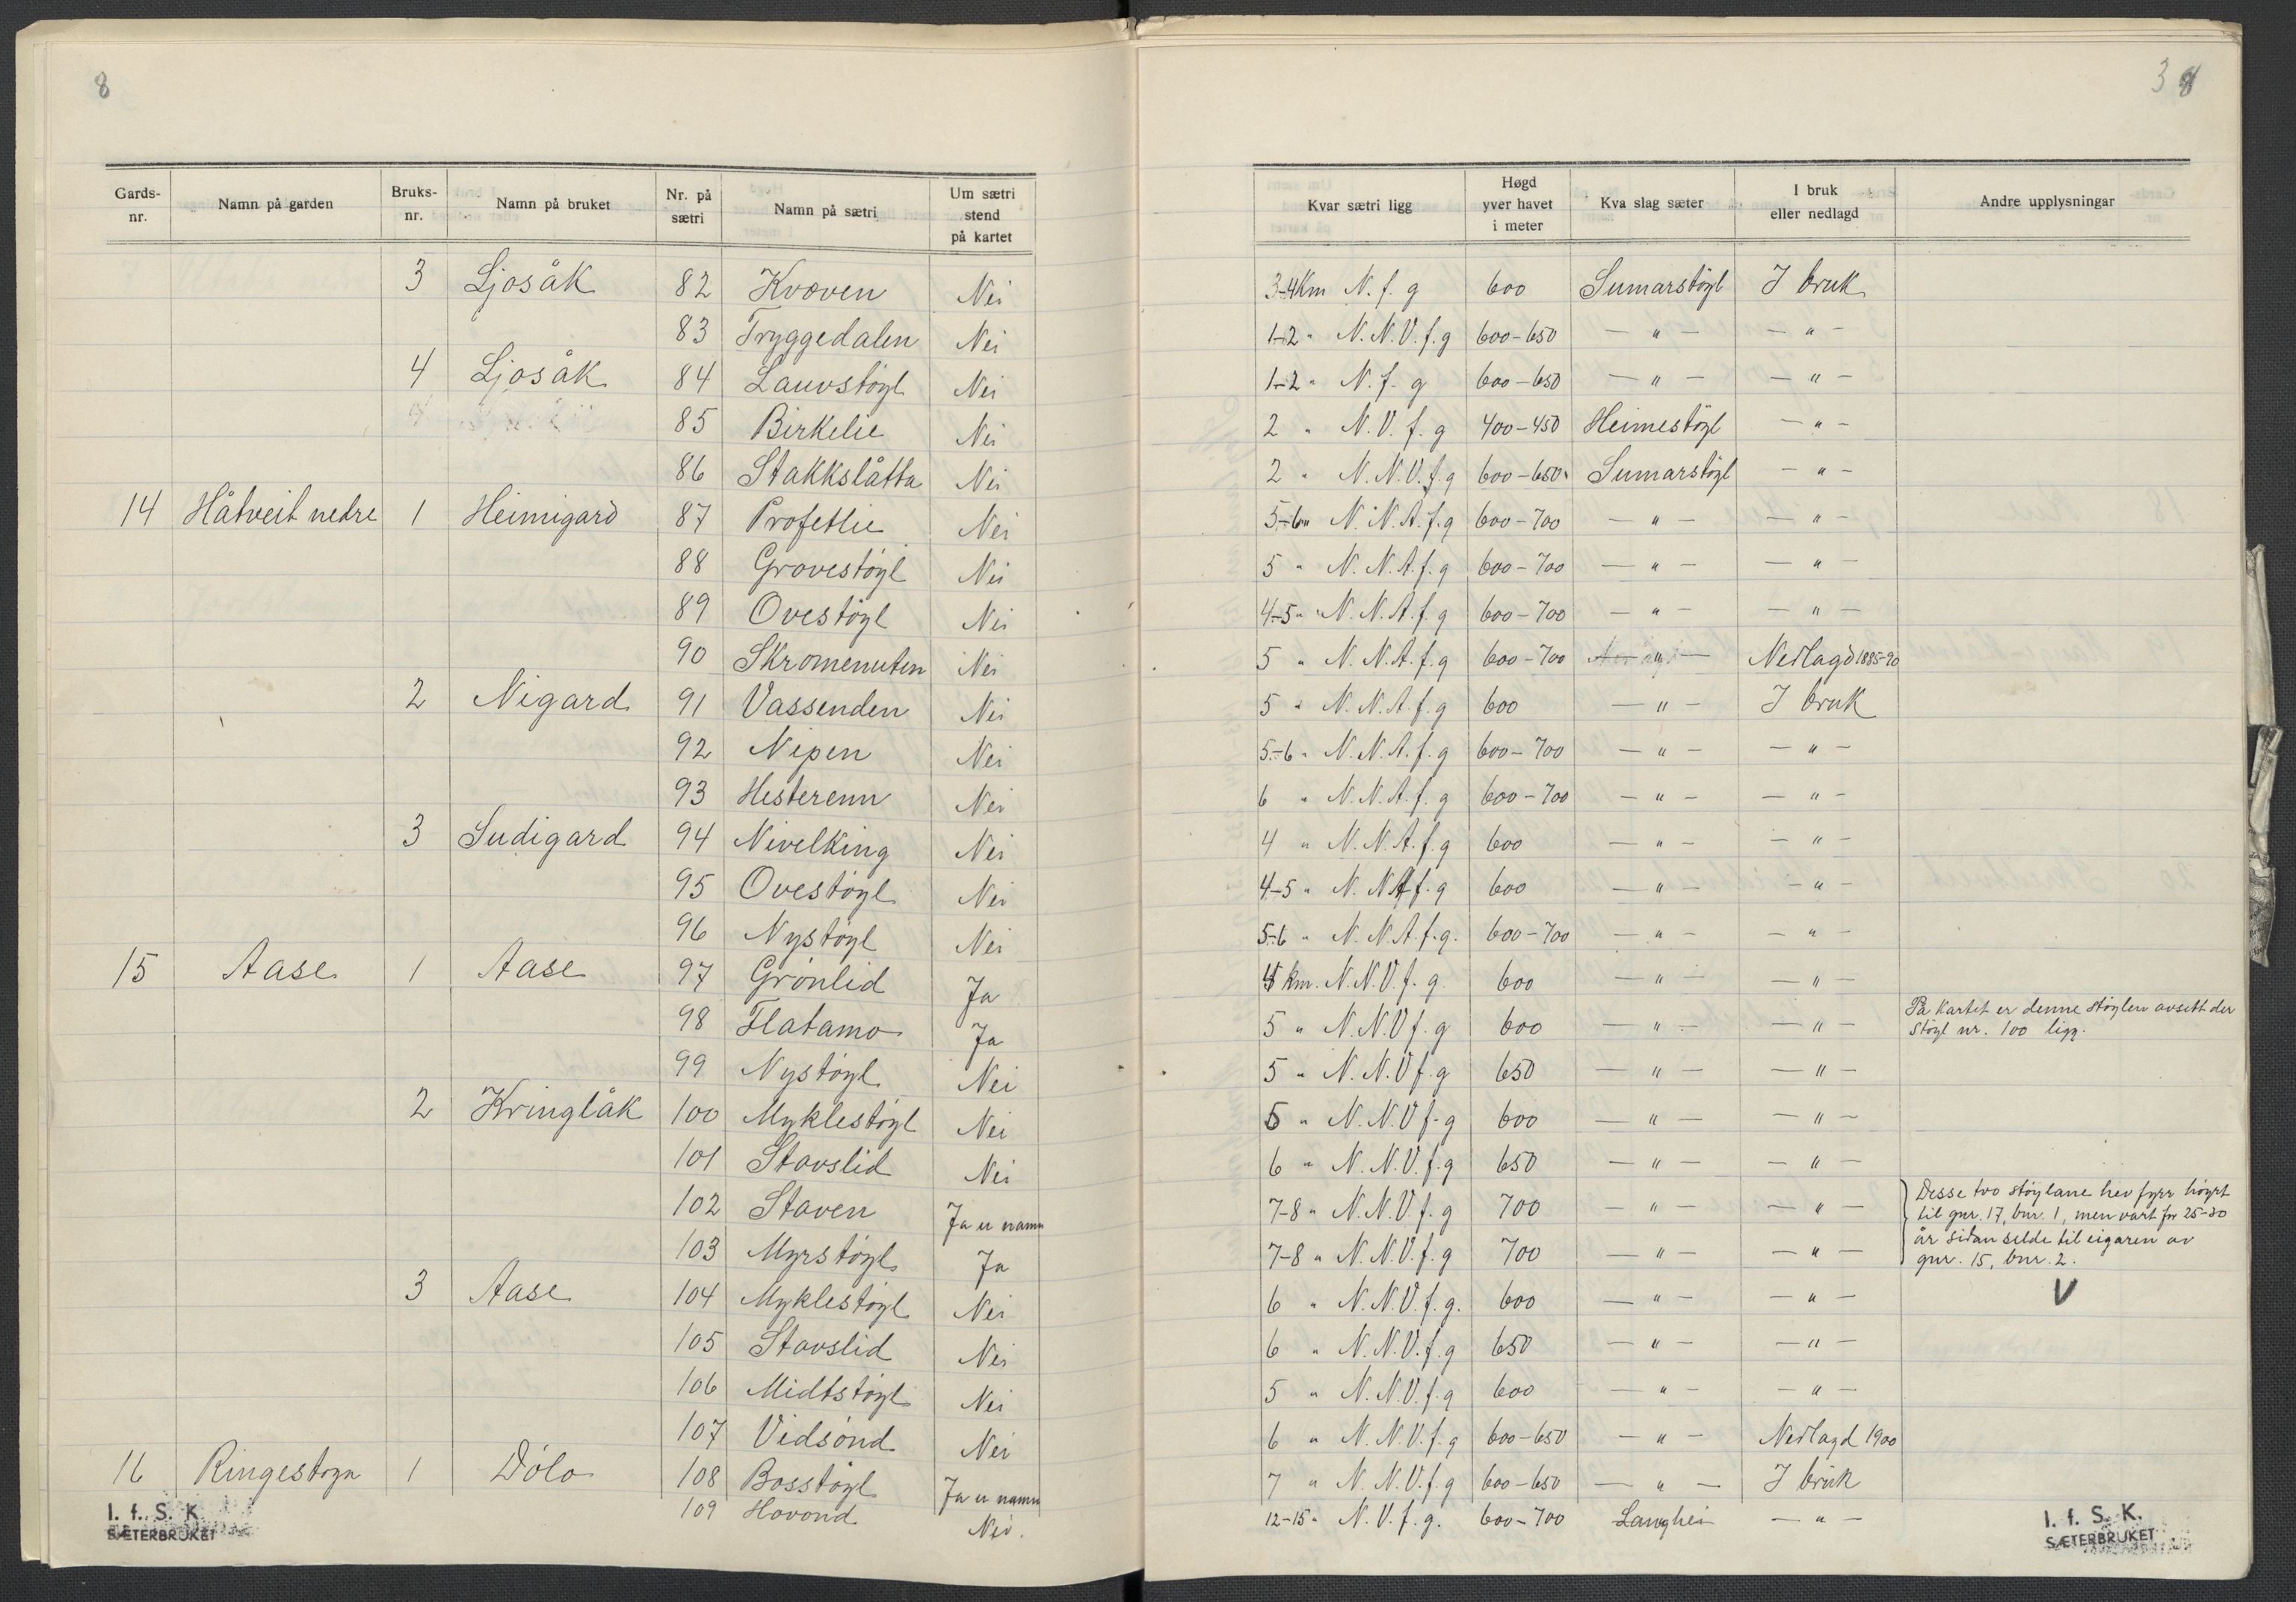 8
Gards-nr. | Namn på garden | Bruks-nr. | Namn på bruket | Nr. på sætri | Namn på sætri | Um sætri stend på kartet
3 Ljosåk 82 Kvoven Nei
83 Tryggedalen Nei
4 Ljosåk 84 Lauvstøyl Nei
85 Birkelie Nei
86 Stakkslåtta Nei
14 Håtveit nedre 1 Heimigard 87 Profetlie Nei
88 Grovestøyl Nei
89 Ovestøyl Nei
90 Skromenuten Nei
2 Nigard 91 Vassenden Nei
92 Nipen Nei
93 Hesterenn Nei
3 Sudigard 94 Nivelking Nei
95 Ovestøyl Nei
96 Nystøyl Nei
15 Aase 1 Aase 97 Grönlid Ja
98 Flatamo Ja
99 Nystøyl Nei
2 Kringlåk 100 Myklestøyl Nei
101 Stavslid Nei
102 Staven Ja u namn
103 Myrstøyl Ja
3 Aase 104 Myklestøyl Nei
105 Stavslid Nei
106 Midtstøyl Nei
107 Vidsond Nei
16 Ringestoga 1 Dólo 108 Bosstøyl Ja u namn
109 Hovond Nei.
I. f. S. K.
SÆTERBRUKET
38
Kvar sætri ligg | Høgd yver havet i meter | Kva slag sæter | I bruk eller nedlagd | Andre upplysningar
3-4 Km N. f. g 600 Sumarstøyl I bruk
1-2 " N. N. V. f. g 600-650 — " — — " —
1-2 " N. f. g 600-650 — " — — " —
2 " N. V. f. g 400-450 Heimestøyl — " —
2 " N. N. V. f. g 600-650 Sumarstøyl — " —
5-6 " N. N. A. f. g 600-700 — " — — " —
5 " N. N. A. f. g 600-700 — " — — " —
4-5 " N. N. A. f. g 600-700 — " — — " —
5 " N. N. A. f. g 600-700 — " — Nedlagd 1885-90
5 " N. N. A. f. g 600 — " — I bruk
5-6 " N. N. A. f. g 600-700 — " — — " —
6 " N. N. A. f. g 600-700 — " — — " —
4 " N. N. A. f. g 600 — " — — " —
4-5 " N. N. A f. g 600 — " — — " —
5-6 " N. N. A. f. g. 600-700 — " — — " —
km. N. N. V. f. g. 600 — " — — " —
5 " N. N. V f. g 600 — " — — " — På kartet er denne støylen avsett der
støyl nr. 100 ligg.
5 " N. N. V f. g 650 — " — — " —
5 " N. N. V f. g 600 — " — — " —
6 " N. N. V. f. g 650 — " — — " —
7-8 " N. N. V. f. g 700 — " — — " — Desse two støylane hev fyrr høyrt
til gnr. 17, bnr. 1, men vart for 25-30
7-8 " N. N. V. f. g 700 — " — — " — år sidan selde til eigaren av
gnr. 15, bnr. 2.
6 " N. N. V. f. g. 600 — " — — " — V
6 " N. N. V. f. g 650 — " — — " —
5 " N. N. V. f. g 600 — " — — " —
6 " N. N. V. f. g 600-650 — " — Nedlagd 1900
7 " N. N. V. f. g 600-650 — " — I bruk
12-15 " N. V. f. g. 600-700 Langhei — " —
I. f. S. K.
SÆTERBRUKET